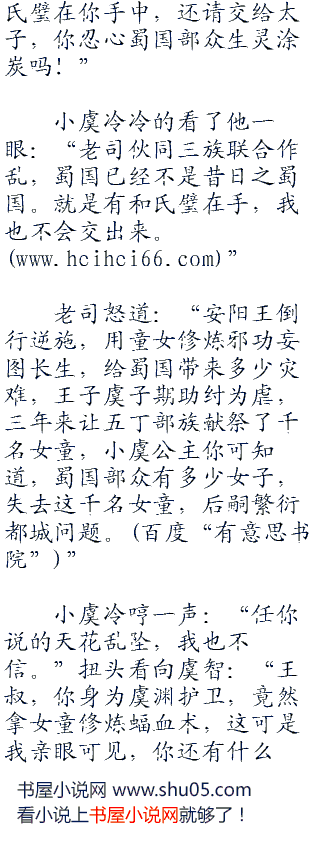 氏璧在你手中，还请交给太
子，你忍心蜀国部众生灵涂
炭吗！”
小虞冷冷的看了他一
眼：“老司伙同三族联合作
乱，蜀国已经不是昔日之蜀
国。就是有和氏璧在手，我
也不会交出来。
(www.hcihci66.com)”
老司怒道：“安阳王倒
行逆施，用童女修炼邪功妄
图长生，给蜀国带来多少灾
难，王子虞子期助纣为虐，
三年来让五丁部族献祭了千
名女童，小虞公主你可知
道，蜀国部众有多少女子，
失去这千名女童，后嗣繁衍
都城问题。(百度“有意思书
院”)”
小虞冷哼一声：“任你
说的天花乱坠，我也不
信。”扭头看向虞智：“王
叔，你身为虞渊护卫，竟然
拿女童修炼蝠血术，这可是
我亲眼可见，你还有什么
书屋小说网 www.shu05.com
看小说上书屋小说网就够了！